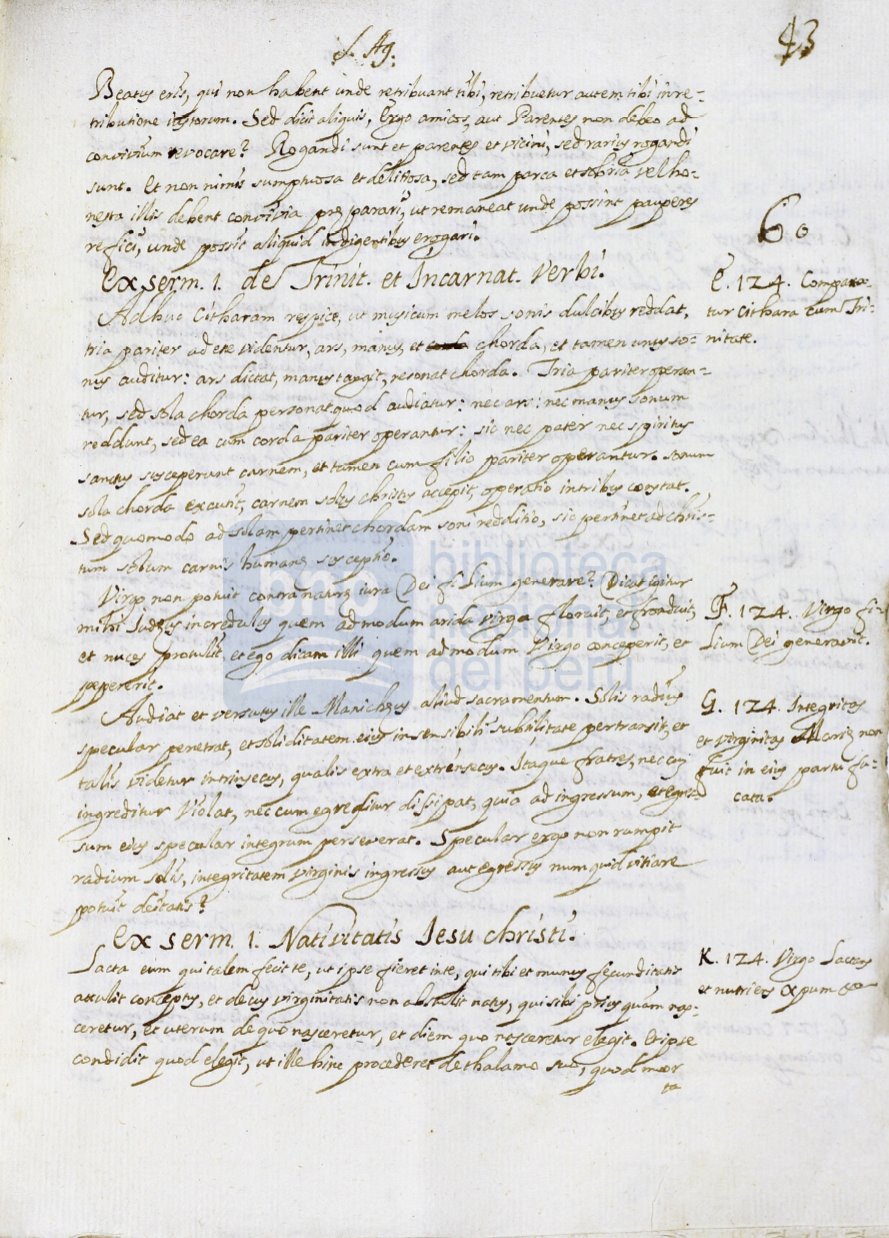 S. Ag.
43
Beatus eris, qui non habent unde retribuant tibi, retribuetur autem tibi in re-
tributione iustorum. Sed dicit aliquis, Ergo amicos, aut Parentes non debeo ad
convivium evocare? Rogandi sunt et parentes et vicini, sed rarius rogandi
sunt. Et non nimis sumptuosa et delitiosa, sed tam parca et sobria vel ho-
nesta illis debent convivia præparari, ut remaneat unde possint pauperes
refici, unde possit aliquid indigentibus erogari.
60
Ex serm. 1. de Trinit. et Incarnat. Verbi.
E. 124. Compara-
tur Cithara cum Tri-
nitate.
Adhuc Citharam respice, ut musicum melos sonis dulcibus reddat,
tria pariter adesse videntur, ars, manus, et chorda, et tamen unus so-
nus auditur: ars dictat, manus tangit, resonat chorda. Tria pariter operan-
tur, sed sola chorda personat quod audiatur: nec ars: nec manus sonum
reddunt, sed ea cum corda pariter operantur: sic nec pater nec spiritus
sanctus susceperunt carnem, et tamen cum filio pariter operantur. Sonum
sola chorda excutit, carnem solus christus accepit, operatio in tribus constat.
Sed quomodo ad solam pertinet chordam soni redditio, sic pertinet ad chris-
tum solum carnis humanæ susceptio.
biblioteca
nacional
del perú
bnp
Virgo non potuit contra naturæ iura Dei filium generare? Dicat igitur
mihi Judæus incredulus quem ad modum arida virga floruit, et fronduit,
et nuces protulit, et ego dicam illi quem ad modum Virgo conceperit, et
pepererit.
F. 124. Virgo fi-
lium Dei generavit.
Audiat et versutus ille Manichæus aliud sacramentum. Solis radius
specular penetrat, et soliditatem eius insensibili subtilitate pertransit, et
talis videtur intrinsecus, qualis extra et extrinsecus. Itaque fratres, nec cum
ingreditur violat, nec cum egreditur dissipat, quia ad ingressum, et egres-
sum eius specular integrum perseverat. Specular ergo non rumpit
radium solis, integritatem virginis ingressus aut egressus numquid vitiare
potuit deitatis?
G. 124. Integritas
et virginitas Mariæ non
fuit in eius partu
Ex serm. 1. Nativitatis Jesu christi.
Lacta eum qui talem fecit te, ut ipse fieret in te, qui tibi et munus fecunditatis
attulit conceptus, et decus virginitatis non abstulit natus, qui sibi prius quam nas-
ceretur, et uterum de quo nasceretur, et diem quo nasceretur elegit. Et ipse
condidit quod elegit, ut ille hinc procederet de thalamo suo, quod mor
ta
K. 124. Virgo Lactans
et nutriens